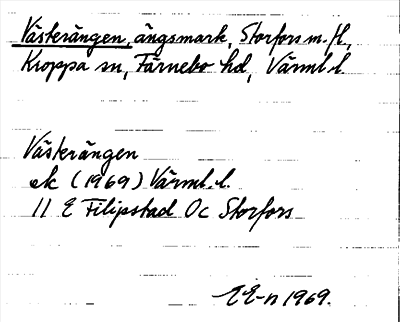 Västerängen, ängsmark, Storfors m.fl.,
Kroppa sn, Färnebo hd, Värml. l.
Västerängen
ek (1969) Värml. l.
11 E Filipstad 0c Storfors
EE-n 1969.